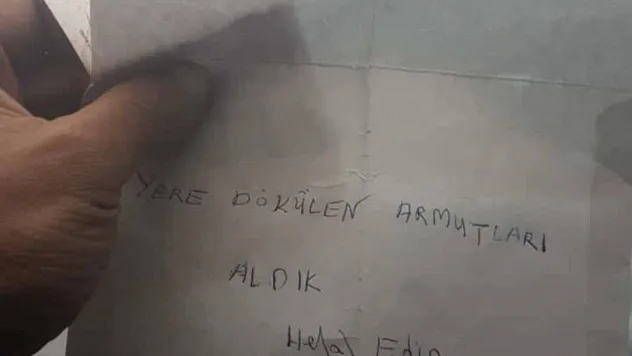 YERE DÖKÜLEN ARMUTLARI
ALDIK
Helal Edin